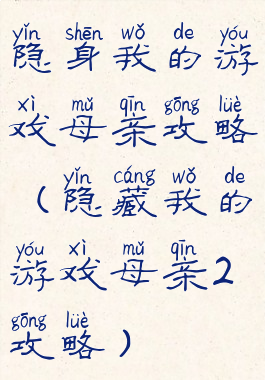 yǐn shēn wǒ de yóu
隐身我的游
xì mǔ qīn gōng lüè
戏母亲攻略
yǐn cáng wǒ de
（隐藏我的
yóu xì mǔ qīn
游戏母亲2
gōng lüè
攻略）